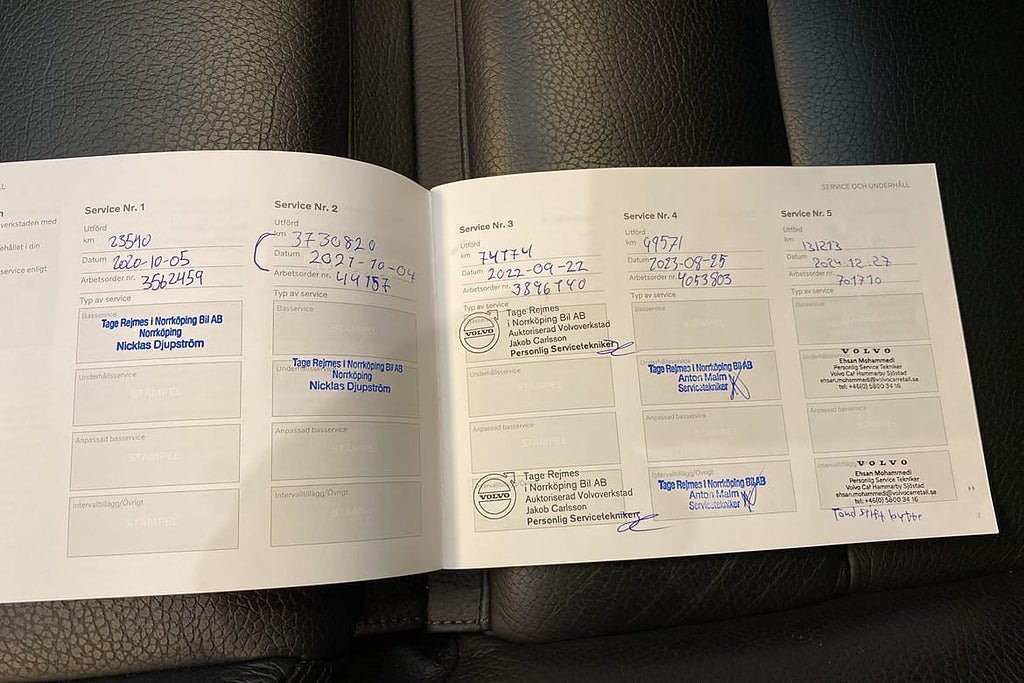 verkstaden med
ehållet i din
service enligt
Service Nr. 1
Utförd
km 23540
Datum 2020-10-05
Arbetsorder nr. 3562459
Typ av service
Basservice
Tage Rejmes i Norrköping Bil AB
Norrköping
Nicklas Djupström
Underhållsservice
STÄMPEL
Anpassad basservice
STÄMPEL
Intervalltillägg/Övrigt
STÄMPEL
Service Nr. 2
Utförd
km 3730820
Datum 2021-10-04
Arbetsorder nr. 44157
Typ av service
Basservice
STÄMPEL
Underhållsservice
Tage Rejmes i Norrköping Bil AB
Norrköping
Nicklas Djupström
Anpassad basservice
STÄMPEL
Intervalltillägg/Övrigt
STÄMPEL
SERVICE OCH UNDERHÅLL
Service Nr. 3
Utförd
km 74774
Datum 2022-09-22
Arbetsorder nr. 3896740
Typ av service
VOLVO
Tage Rejmes
i Norrköping Bil AB
Auktoriserad Volvoverkstad
Jakob Carlsson
Personlig Servicetekniker
Underhållsservice
STÄMPEL
Anpassad basservice
STÄMPEL
VOLVO
Tage Rejmes
i Norrköping Bil AB
Auktoriserad Volvoverkstad
Jakob Carlsson
Personlig Servicetekniker
Service Nr. 4
Utförd
km 99571
Datum 2023-08-25
Arbetsorder nr. 4053803
Typ av service
Basservice
STÄMPEL
Underhållsservice
Tage Rejmes i Norrköping Bil AB
Anton Malm
Servicetekniker
Anpassad basservice
STÄMPEL
Intervalltillägg/Övrigt
Tage Rejmes i Norrköping Bil AB
Anton Malm
Servicetekniker
Service Nr. 5
Utförd
km 131213
Datum 2024-12-27
Arbetsorder nr. 701710
Typ av service
Basservice
STÄMPEL
Underhållsservice
VOLVO
Ehsan Mohammedi
Personlig Service Tekniker
Volvo Car Hammarby Sjöstad
ehsan.mohammedi@volvocarretail.se
tel: +46(0) 5800 34 16
Anpassad basservice
STÄMPEL
VOLVO
Ehsan Mohammedi
Personlig Service Tekniker
Volvo Car Hammarby Sjöstad
ehsan.mohammedi@volvocarretail.se
tel: +46(0) 5800 34 16
Tändstift bytte
7